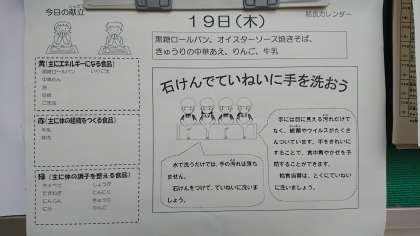 今日の献立
給食カレンダー
19日(木)
黒糖ロールパン、オイスターソース焼きそば、
きゅうりの中華あえ、りんご、牛乳
黄(主にエネルギーになる食品)
黒糖ロールパン
中華めん
油
砂糖
ごま油
赤(主に体の組織をつくる食品)
牛乳
豚肉
緑(主に体の調子を整える食品)
キャベツ しょうが
たまねぎ にんにく
にんじん きゅうり
りんご
石けんでていねいに手を洗おう
水で洗うだけでは、手の汚れは落ち
ません。
石けんをつけて、ていねいに洗いまし
ょう。
手には目に見える汚れだけで
なく、細菌やウイルスがたくさ
んついています。手をきれいに
することで、食中毒やかぜを予
防することができます。
給食当番は、とくにていねい
に洗いましょう。